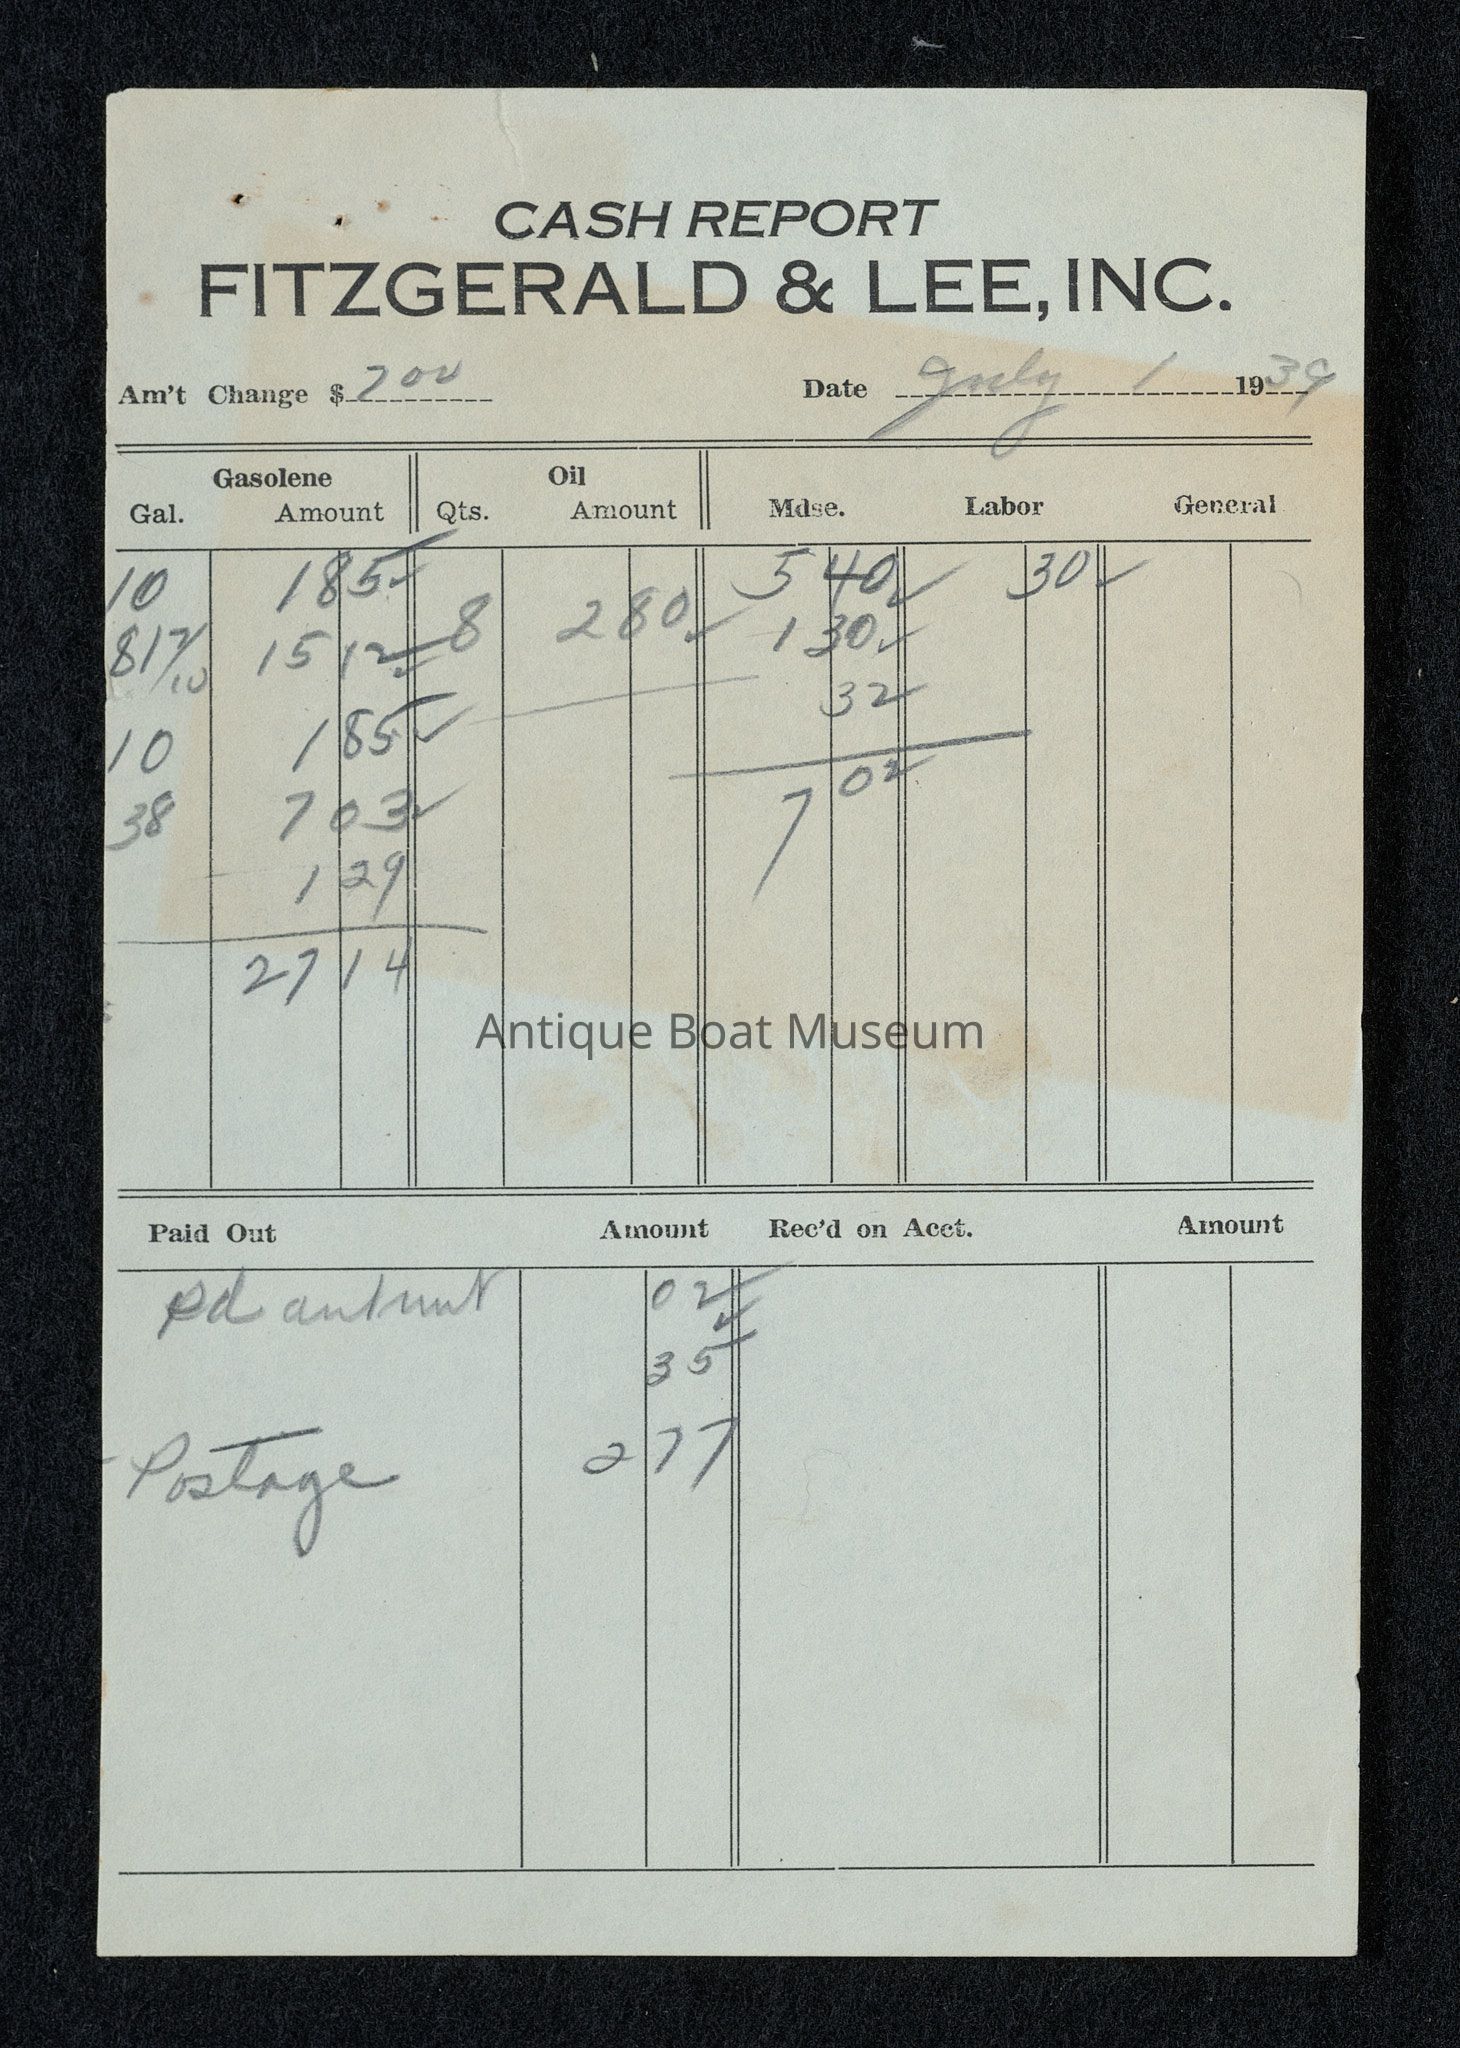 CASH REPORT
FITZGERALD & LEE, INC.
Am't Change $ 700 Date July 1 1939
Gasolene Oil
Gal. Amount Qts. Amount Mdse. Labor General
10 1 85 5 40 30
81 7/10 15 12 8 2 80 1 30
10 1 85 32
38 7 03 7 02
1 29
27 14
Antique Boat Museum
Paid Out Amount Rec'd on Acct. Amount
Pd 02
35
Postage 2 77